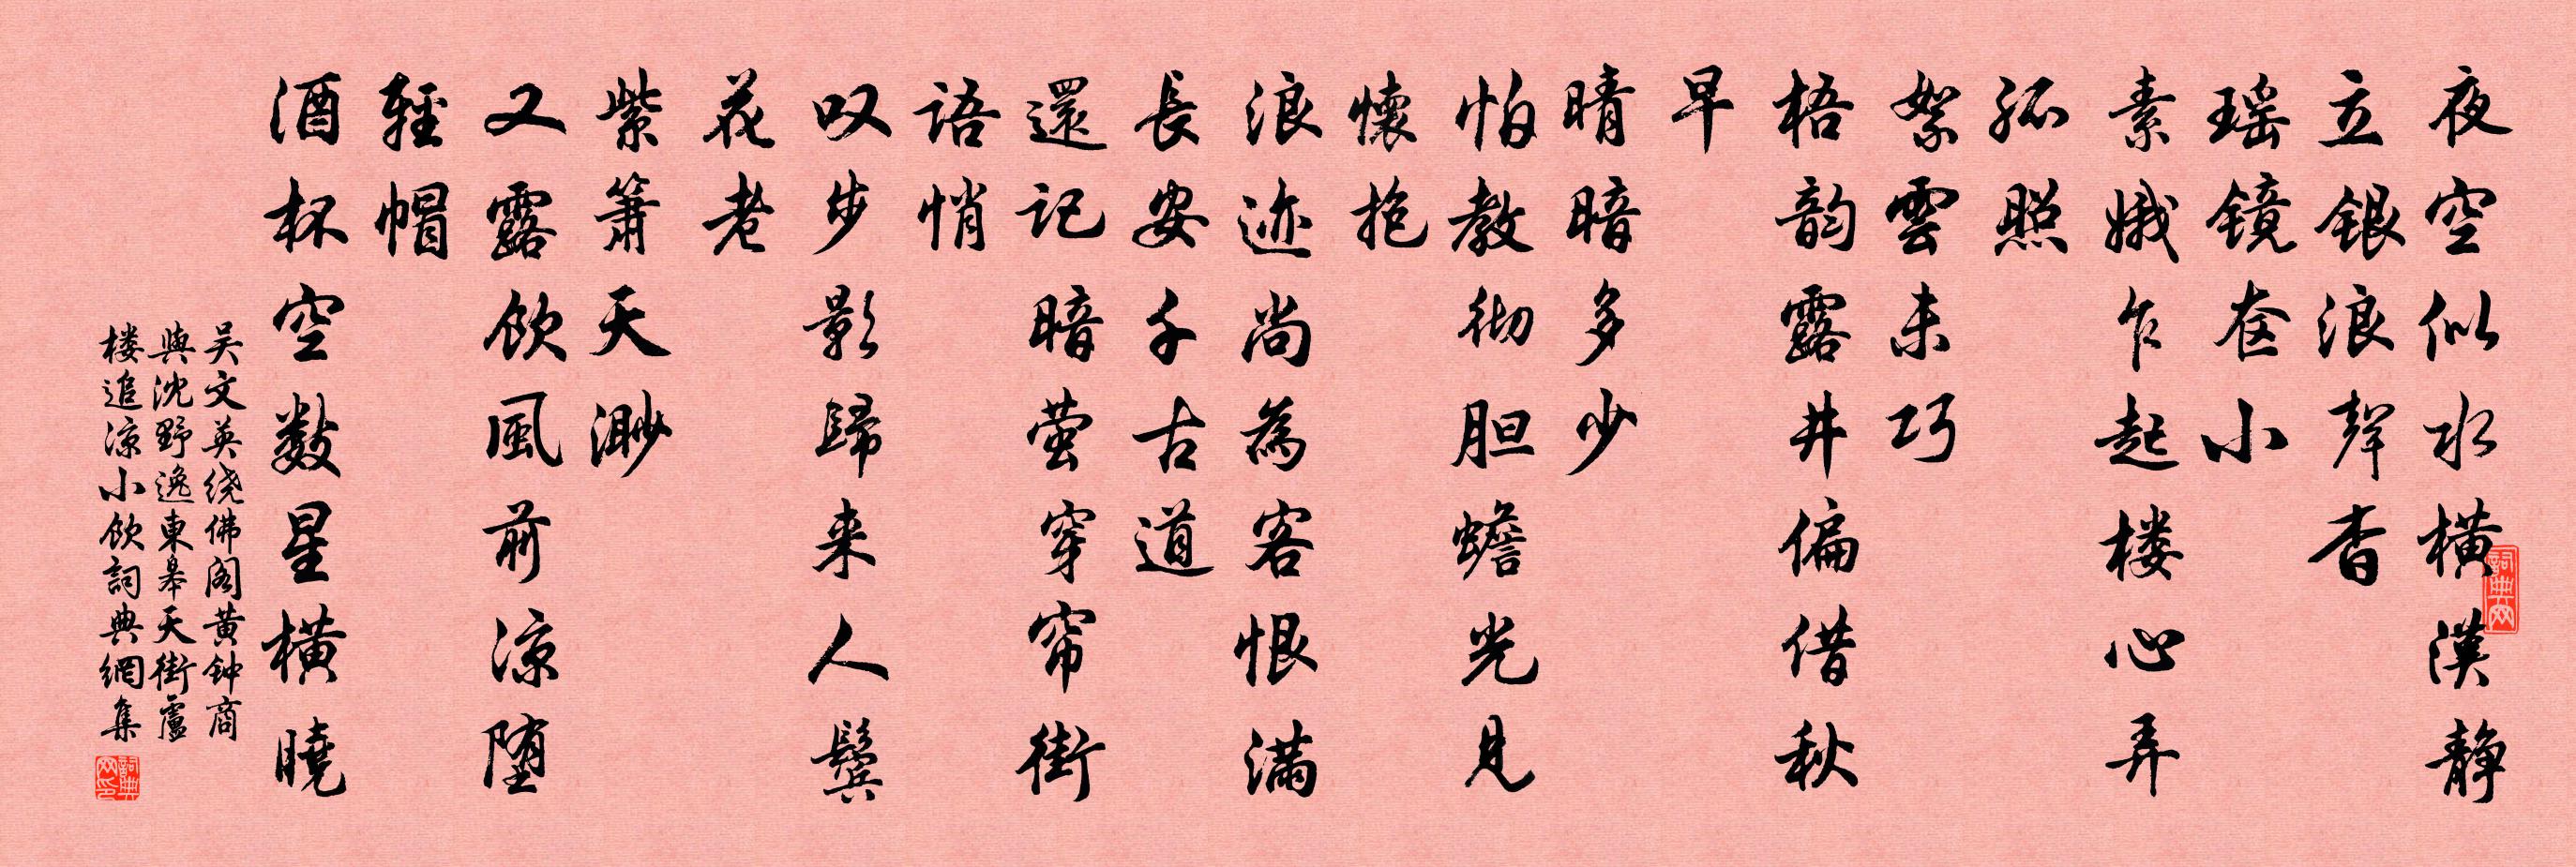 夜空似水橫漢静
立銀浪聲杳
瑶镜奁小
素娥乍起楼心弄
孤照
絮雲未巧
梧韵露井偏借秋
早
晴暗多少
怕教彻胆蟾光見
懷抱
浪迹尚為客恨满
長安千古道
還记暗萤穿帘街
語悄
叹步影歸来人鬓
花老
紫箫天渺
又露飲風前凉堕
輕帽
酒杯空数星橫曉
吴文英绕佛阁黄钟商
與沈野逸東皋天街盧
楼追凉小飲詞典網集
詞典网
詞典网印